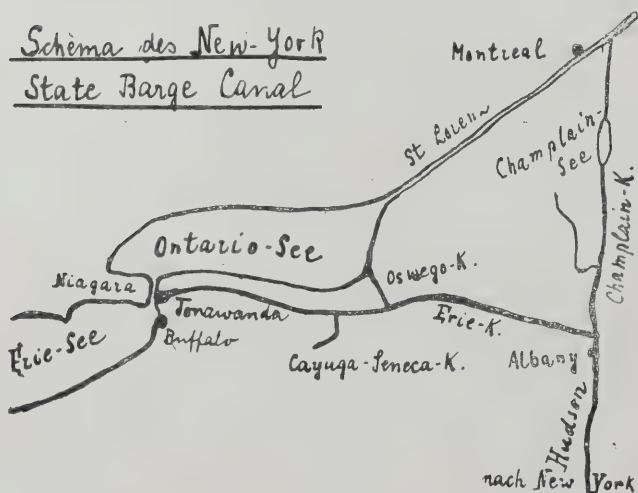 Schèma des New-York
State Barge Canal
Montreal
St Loren
Champlain-
See
Champlain-K.
Ontario-See
Niagara
Oswego-K.
Tonawanda
Erie-K.
Erie-See
Buffalo
Cayuga-Seneca-K.
Albany
Hudson
nach New York